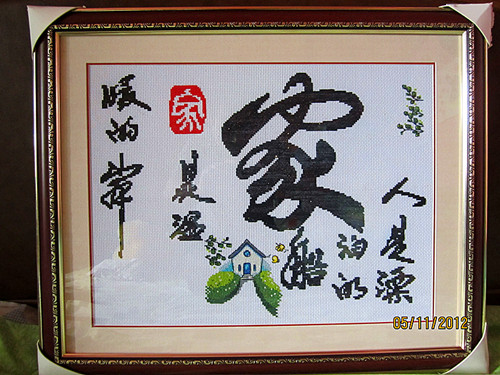 人是漂
泊的
船
家
是温
家
暖的岸
05/11/2012